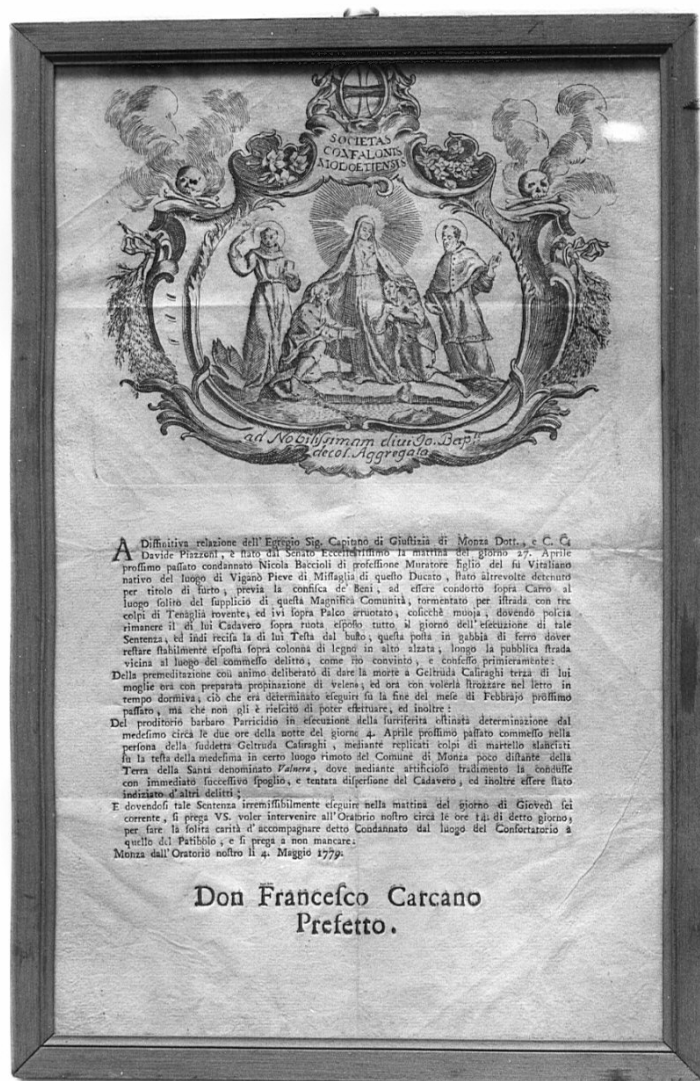 SOCIETAS
CONFALONIS
MODOETIENSIS
ad Nobilissimam diui Io. Bap.
decol. Aggregata
A Diffinitiva relazione dell' Egregio Sig. Capitano di Giustizia di Monza Dott., e C. C.
Davide Piazzoni, è ſtato dal Senato Eccellentiſſimo la mattina del giorno 27. Aprile
proſſimo paſſato condannato Nicola Baccioli di profeſſione Muratore figlio del fù Vitaliano
nativo del luogo di Viganò Pieve di Miſſaglia di queſto Ducato, ſtato altrevolte detenuto
per titolo di furto, previa la confiſca de' Beni, ad eſſere condotto ſoprà Carro al
luogo ſolitò del ſupplicio di queſtà Magnificà Comunità, tormentatò per iſtradà con tre
colpi di Tenaglià rovente, ed ivi ſoprà Palco arruotato, coſicchè muoja, dovendo poſcià
rimanere il di lui Cadaverò ſoprà ruotà eſpoſto tutto il giorno dell'eſecuzione di tale
Sentenzà, ed indi reciſa la di lui Teſta dal buſtò, queſtà poſtà in gabbià di ferro dover
reſtare ſtabilmente eſpoſtà ſoprà colonnà di legno in altò alzatà, lungo la pubblicà ſtradà
vicinà al luogo del commeſſo delitto, come reo convinto, e confeſſo primieramente:
Della premeditazione con animo deliberatò di dare la morte à Geltruda Caſiraghi terzà di lui
moglie orà con preparatà propinazione di velenò, ed orà con volerlà ſtrozzare nel letto in
tempo dormivà, ciò che erà determinatò eſeguire ſù la fine del meſe di Febbrajò proſſimo
paſſato, mà che non gli è rieſcitò di poter effettuare, ed inoltre:
Del proditorio barbaro Parricidio in eſecuzione della ſurriferità oſtinatà determinazione dal
medeſimo circà le due ore della notte del giorno 4. Aprile proſſimo paſſato commeſſo nella
perſonà della ſuddettà Geltruda Caſiraghi, mediante replicati colpi di martello ſlanciati
ſù la teſtà della medeſimà in certo luogo rimotò del Comune di Monza poco diſtante dalla
Terrà della Santà denominatò Valnera, dove mediante artificioſo tradimento la conduſſe
con immediatò ſucceſſivo ſpoglio, e tentatà diſperſione del Cadavero, ed inoltre eſſere ſtato
indiziatò d'altri delitti;
E dovendoſi tale Sentenzà irremiſſibilmente eſeguire nella mattinà del giorno di Giovedì ſei
corrente, ſi pregà VS. voler intervenire all'Oratorio noſtro circà le ore 14: di detto giorno,
per fare la ſolità carità d'accompagnare detto Condannato dal luogo del Confortatorio à
quello del Patibolo, e ſi pregà à non mancare:
Monza dall'Oratorio noſtro li 4. Maggio 1779.
Don Franceſco Carcano
Prefetto.